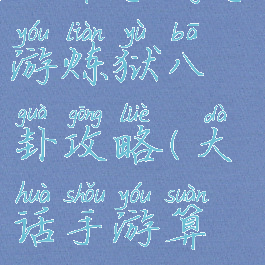 yóu liàn yù bā
游炼狱八
guà gōng lüè dà
卦攻略(大
huà shǒu yóu suàn
话手游算